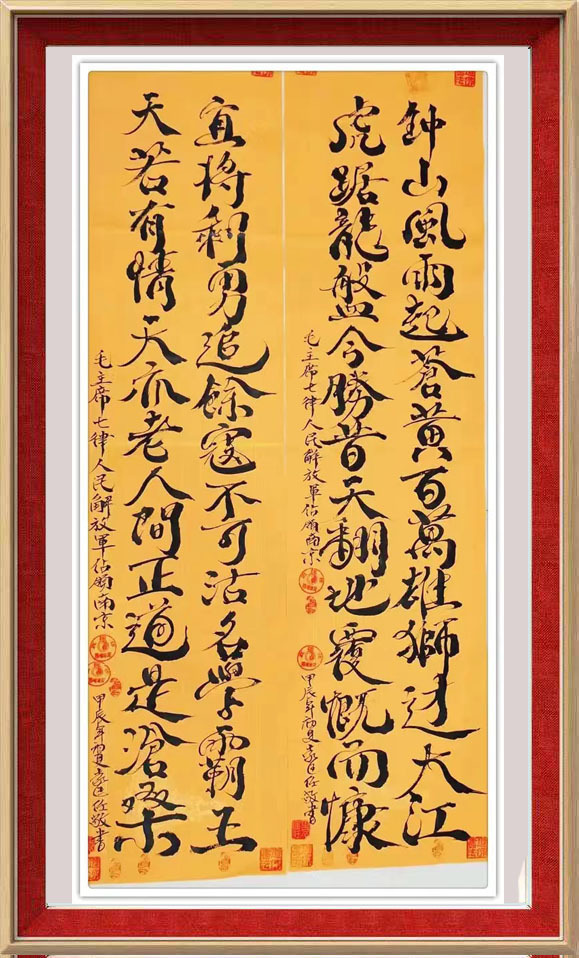 鈡山風雨起蒼黃百萬雄獅過大江
虎踞龍盤今勝昔天翻地覆慨而慷
毛主席七律人民解放軍佔領南京
甲辰年初夏敬書
宜將剩勇追餘寇不可沽名學霸王
天若有情天亦老人間正道是滄桑
毛主席七律人民解放軍佔領南京
甲辰年初夏敬書